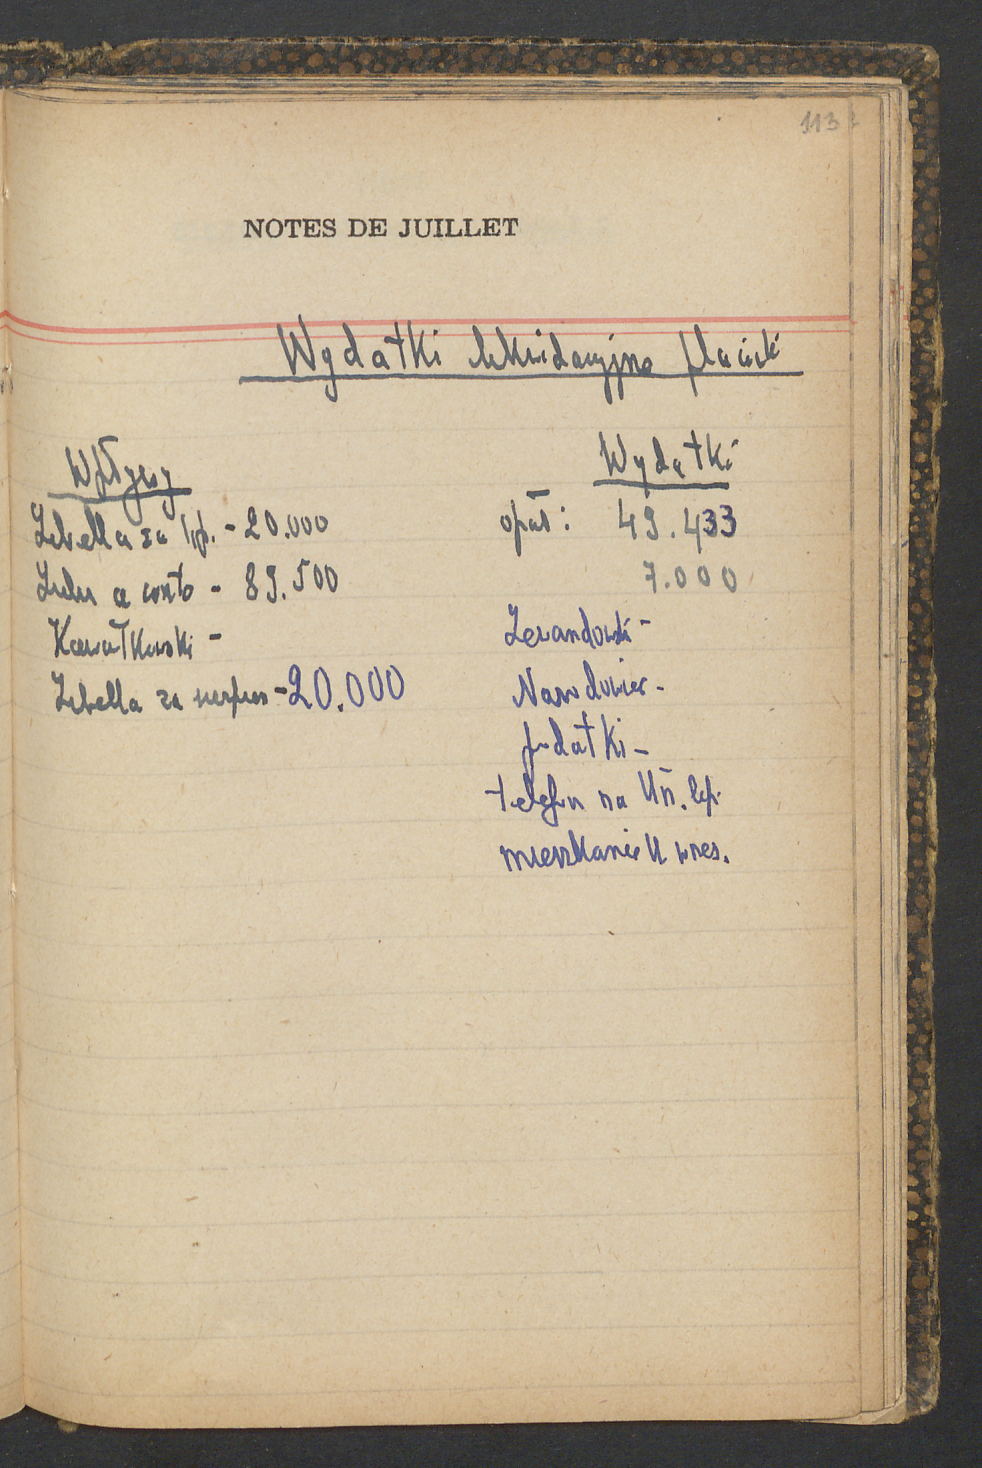 113
NOTES DE JUILLET
Wydatki likwidacyjne placówki
Wpływy
Libella za lip. - 20.000
a conto - 89.500
Kawałkowski -
Libella za sierpień - 20.000
Wydatki
opał: 49.433
7.000
Lewandowski -
Narodowiec -
podatki -
telefon na
mieszkanie